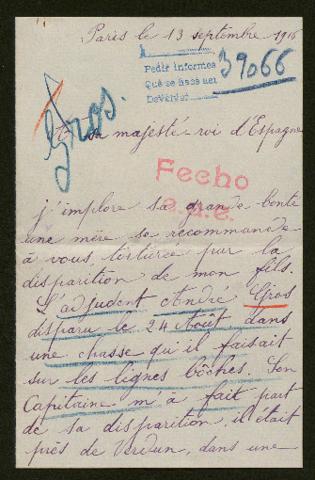 Paris le 13 septembre 1916
Pedir informes
Que se hace
39066
Gros.
majesté roi d'Espagne
Fecho
j'implore sa grande bonté
une mère se recommande
à vous, torturée par la
disparition de mon fils.
L'adjudent André Gros
disparu le 24 Août dans
une chasse qu'il faisait
sur les lignes bôches. Son
Capitaine m'à fait part
de sa disparition, il était
près de Verdun, dans une